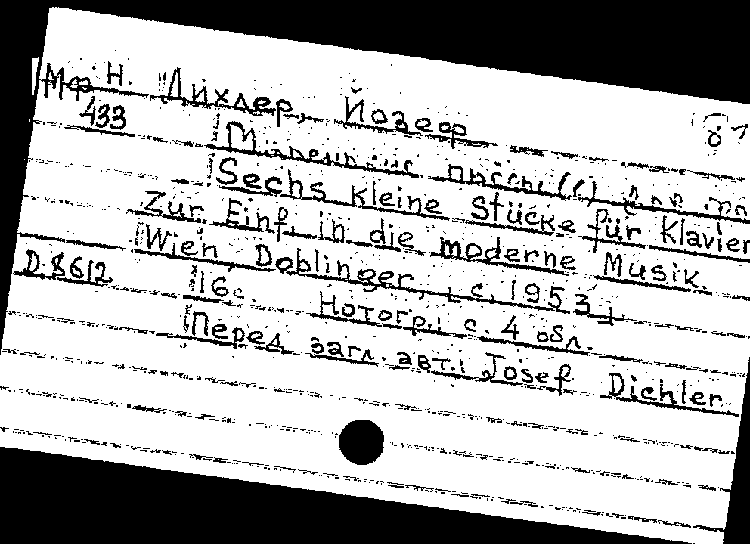 Мф Н. Дихлер, Йозеф
433
Маленькие пьесы (6) для
Sechs kleine Stücke für Klavier
Zur Einf. in die moderne Musik.
Wien, Doblinger, [с. 1953].
D.8612 16 с. Нотогр.; с. 4 обл.
Перед загл. авт.: Josef Dichler